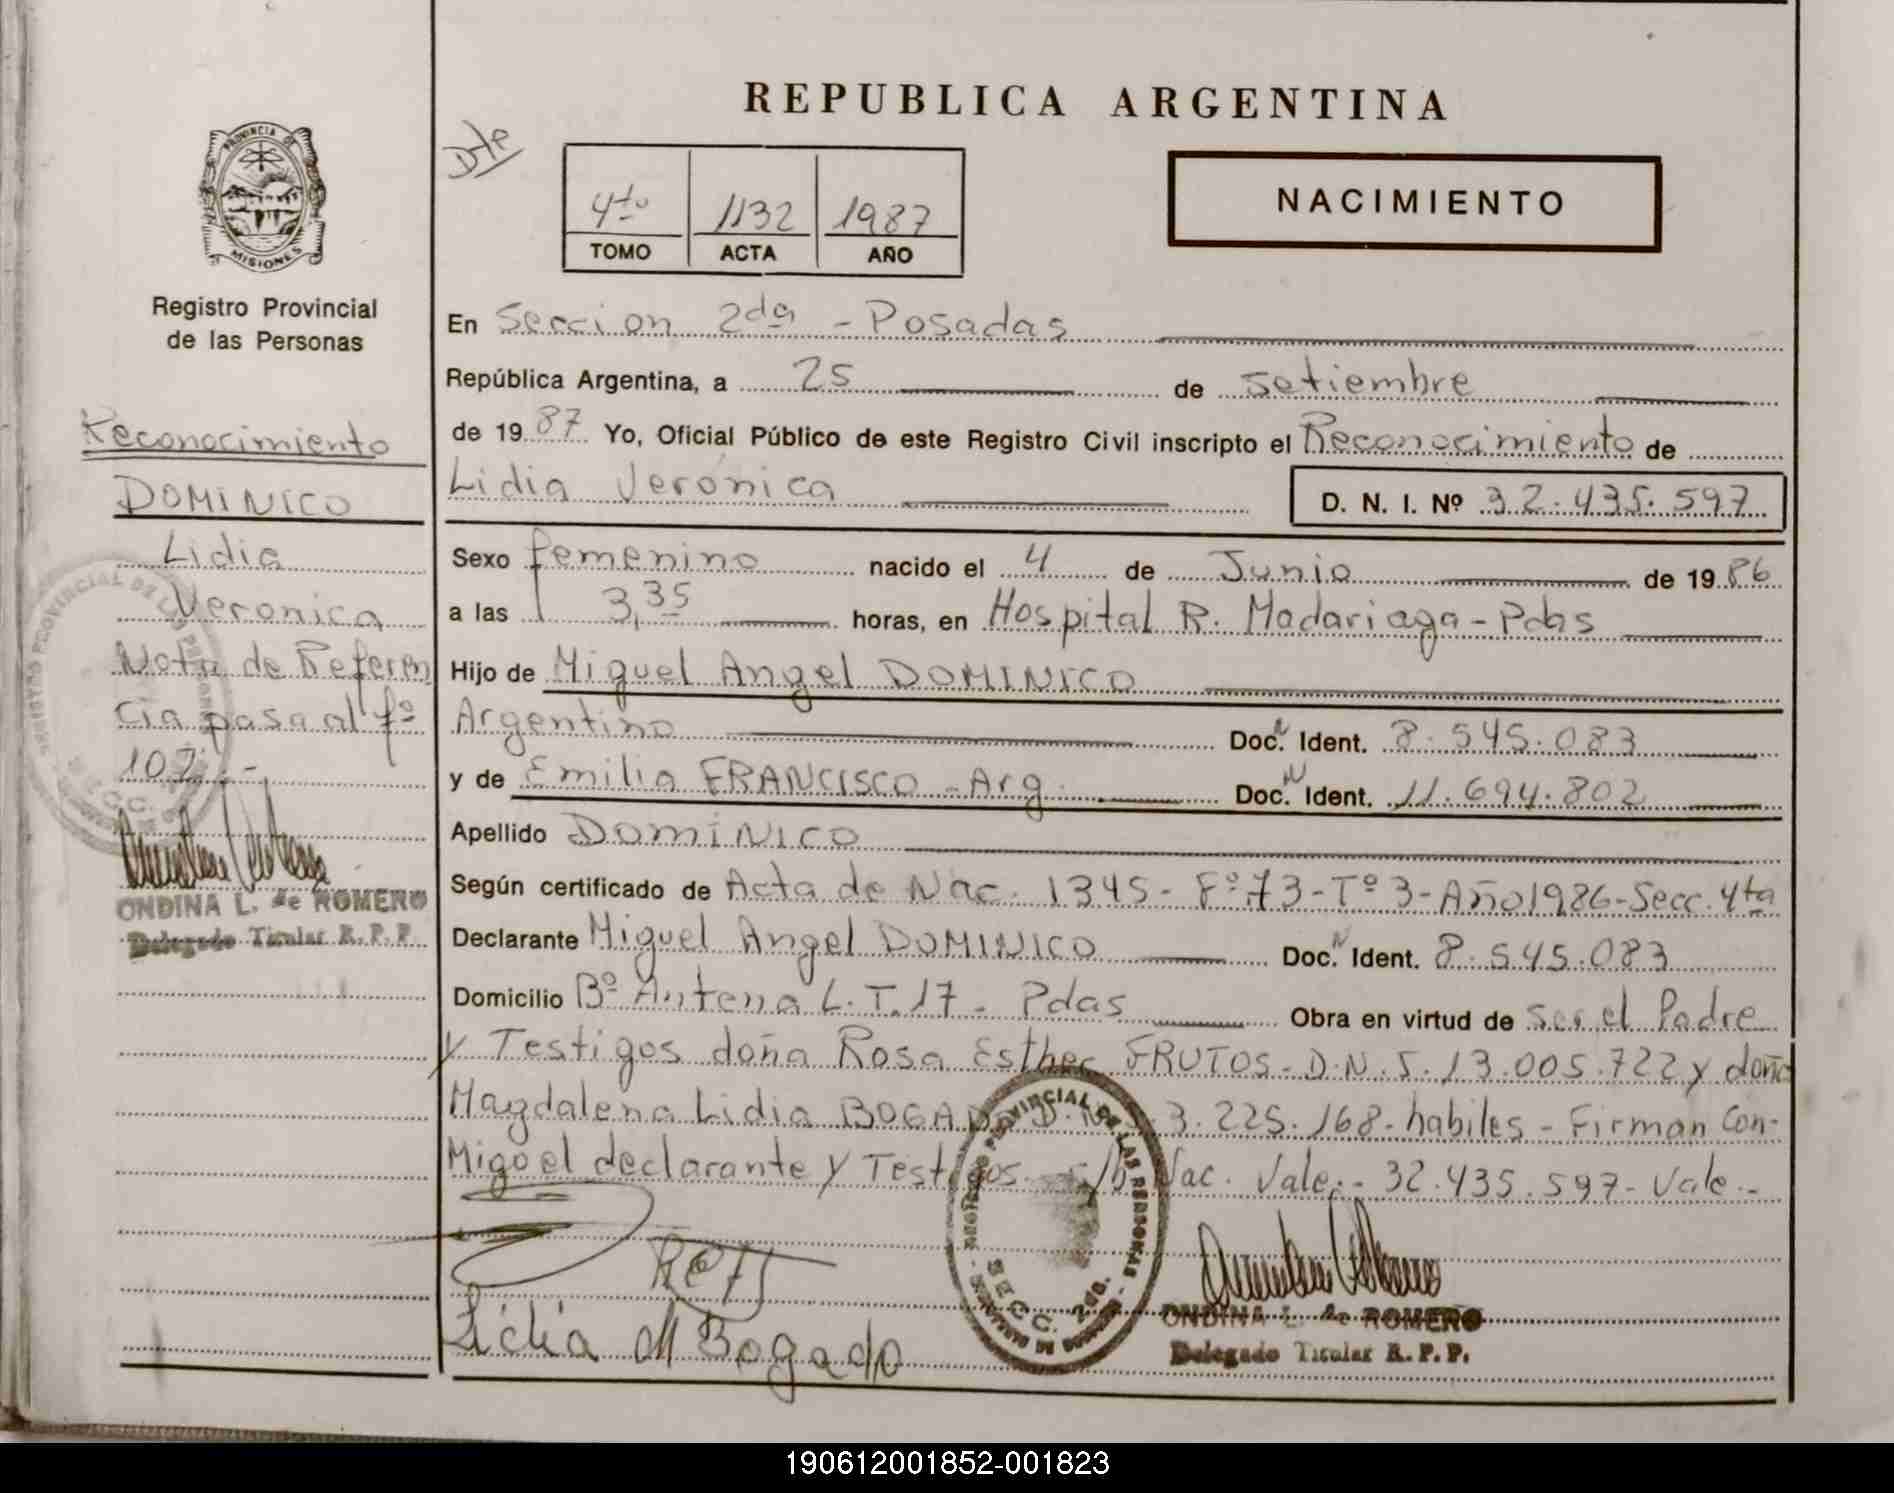 REPUBLICA ARGENTINA
Dte
4to 1132 1987
TOMO ACTA AÑO
NACIMIENTO
PROVINCIA DE MISIONES
Registro Provincial
de las Personas
Reconocimiento
DOMINICO
Lidia
Veronica
Nota de Referen
cia pasa al fº
102.-
ONDINA L. de ROMERO
Delegado Titular R. P. P.
En Seccion 2da - Posadas
República Argentina, a 25 de Setiembre
de 1987 Yo, Oficial Público de este Registro Civil inscripto el Reconocimiento de
Lidia Verónica D. N. I. Nº 32.435.597
Sexo femenino nacido el 4 de Junio de 1986
a las 3,35 horas, en Hospital R. Madariaga - Pdas
Hijo de Miguel Angel DOMINICO
Argentino Doc. N Ident. 8.545.083
y de Emilia FRANCISCO - Arg. Doc. N Ident. 11.694.802
Apellido DOMINICO
Según certificado de Acta de Nac. 1345 - Fº 73 - Tº 3 - Año 1986 - Secc. 4ta
Declarante Miguel Angel DOMINICO Doc. N Ident. 8.545.083
Domicilio Bº Antena L.T.17 - Pdas Obra en virtud de ser el Padre
y Testigos doña Rosa Esther FRUTOS - D.N.I. 13.005.722 y doña
Magdalena Lidia BOGADO D.N. 3.225.168 - habiles - Firman Con-
Migo el declarante y Testigos. Nac. Vale.- 32.435.597 - Vale.-
Lidia M Bogado
REGISTRO PROVINCIAL DE LAS PERSONAS
SECC. 2da.
ONDINA L. de ROMERO
Delegado Titular R. P. P.
190612001852-001823